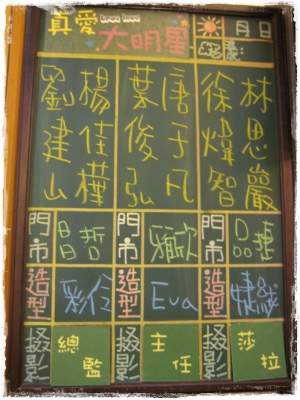 真愛
大明星
月 日
劉建山
楊佳樺
葉俊弘
唐于凡
徐煒智
林思巖
門市 昌哲 門市 雅欣 門市 品捷
造型 彩伶 造型 Eva 造型
攝影 總監 攝影 主任 攝影 莎拉